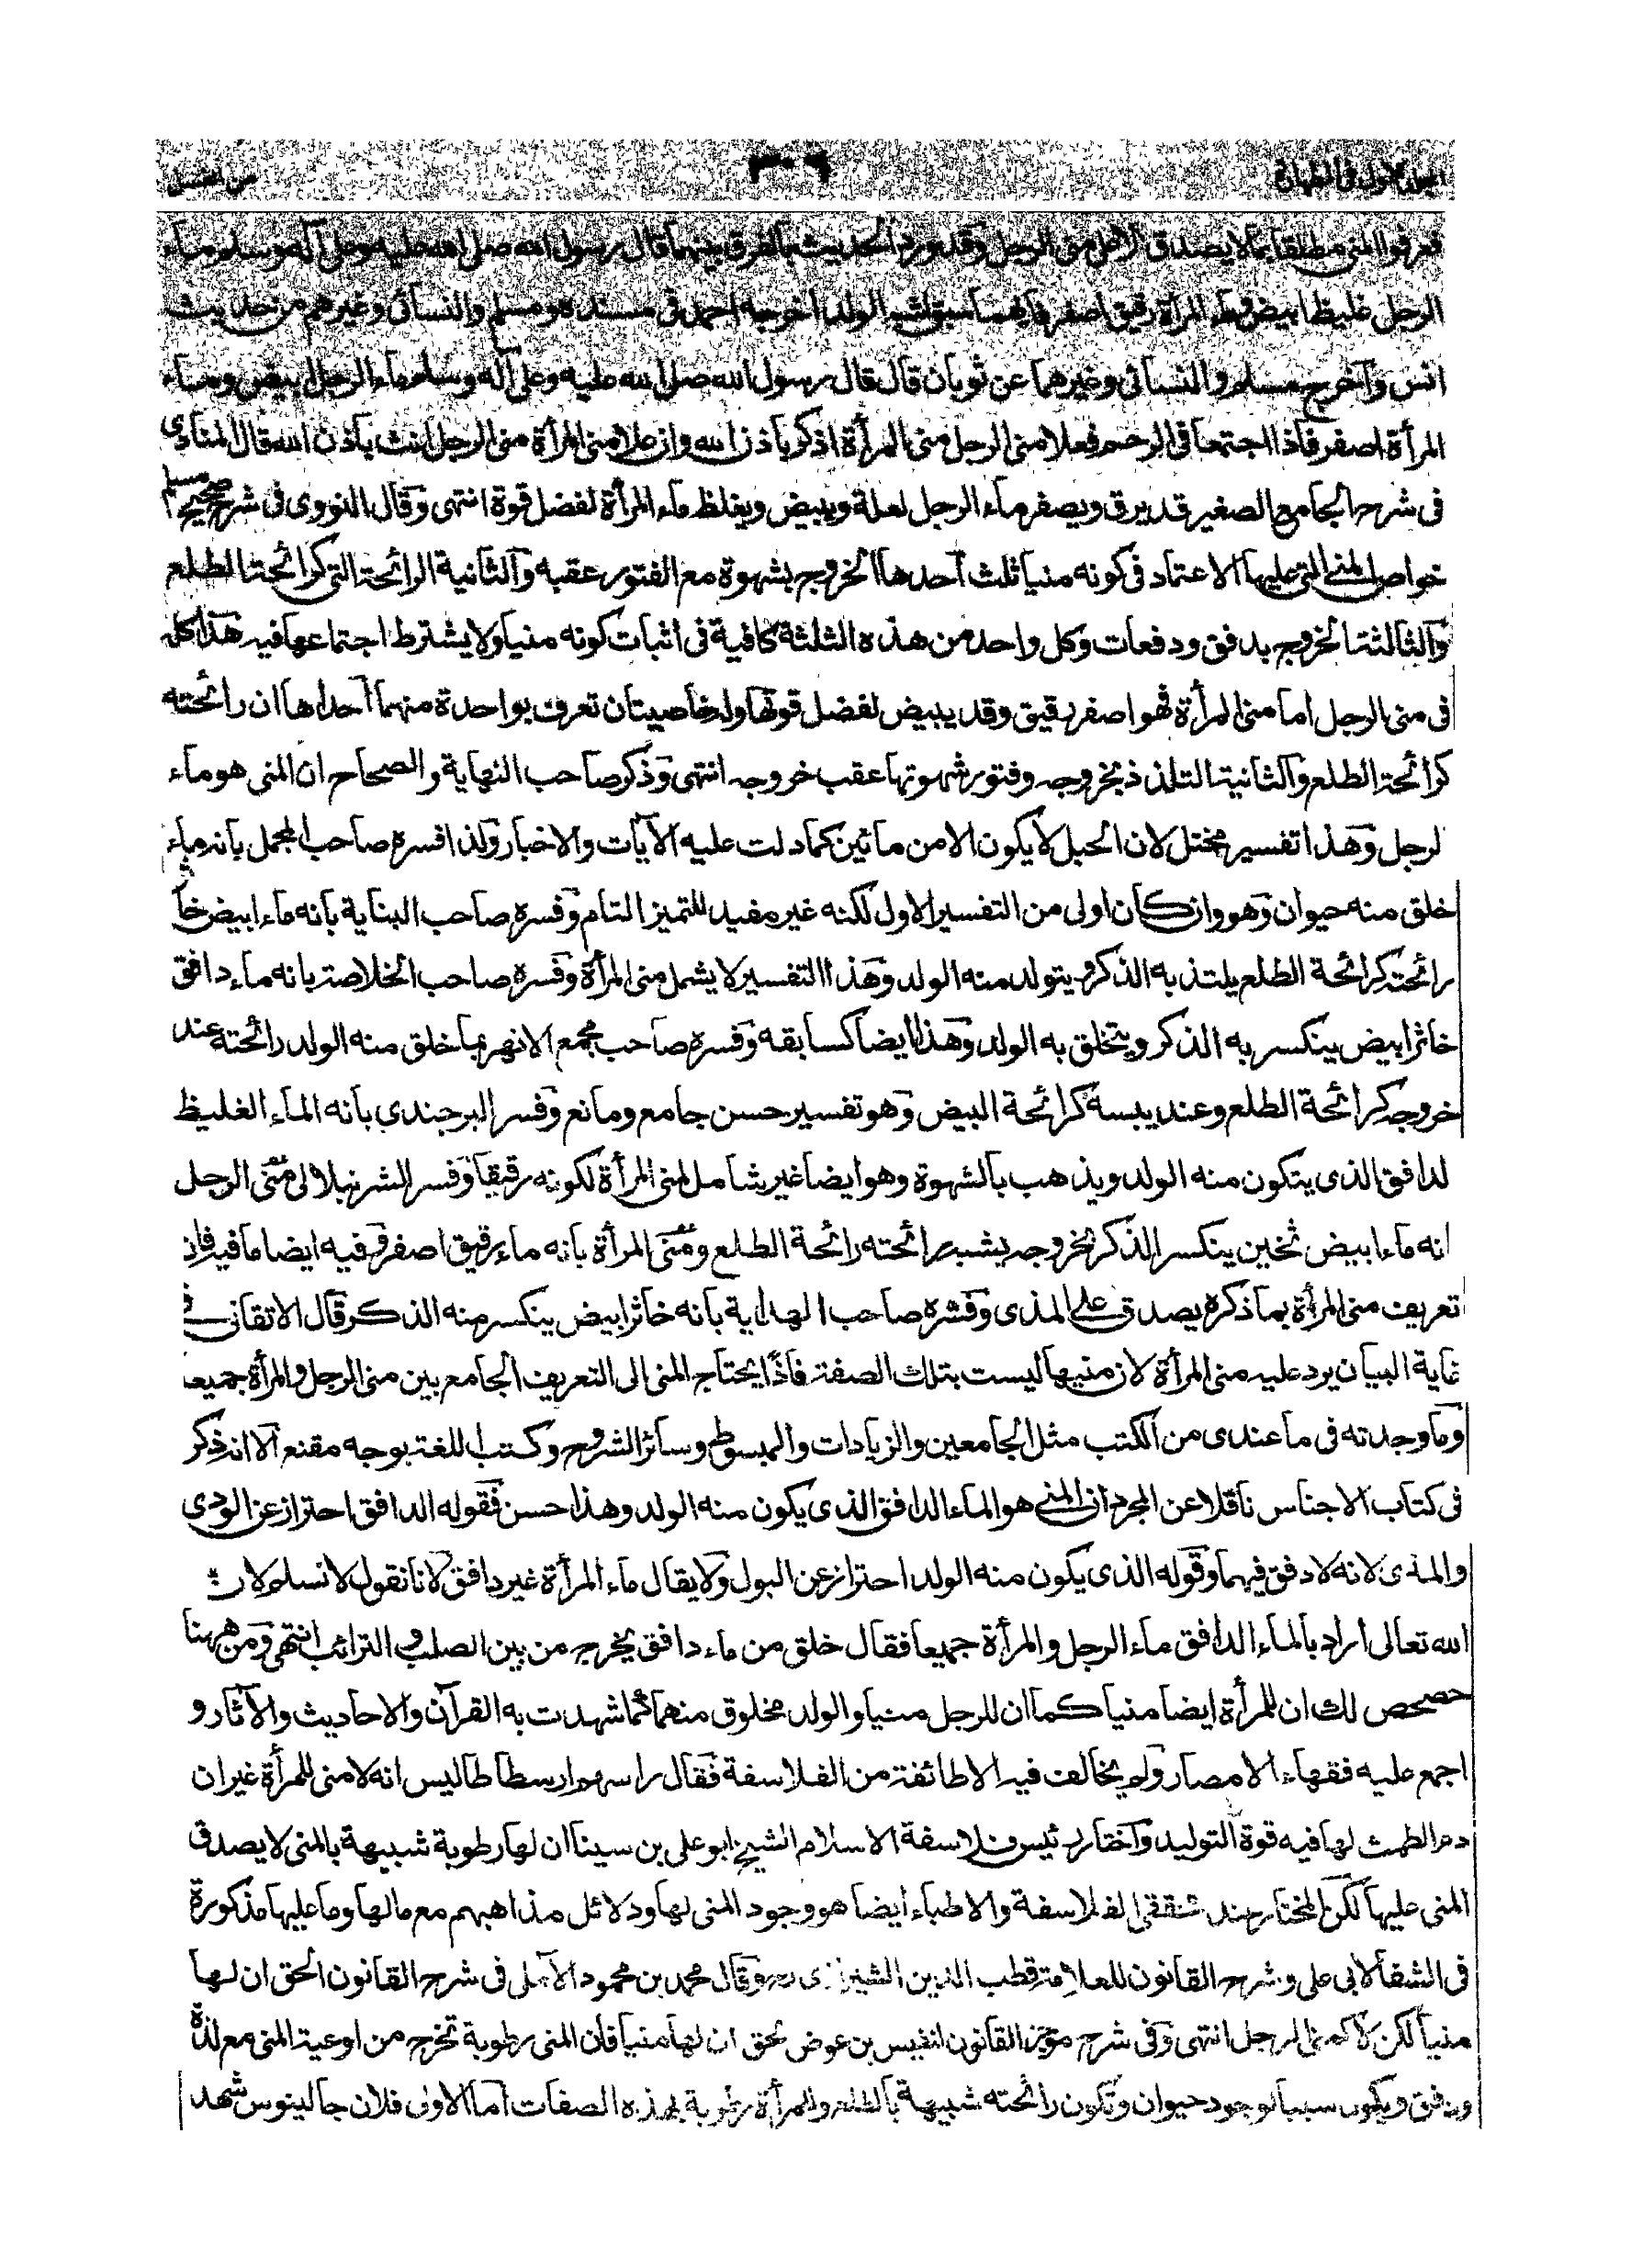 الجلد الاول فى الطهارة ٣٠٩ من الغسل
فعرفوا المنى مطلقا بما لا يصدق الا على منى الرجل وقد ورد الحديث بالفرق بينهما قال رسول الله صلى الله عليه وعلى آله وسلم ماء
الرجل غليظ ابيض وماء المرأة رقيق اصفر فايهما سبق اشبه الولد اخرجه احمد فى مسنده ومسلم والنسائى وغيرهم من حديث
انس وآخرج مسلم والنسائى وغيرهما عن ثوبان قال قال رسول الله صلى الله عليه وعلى آله وسلم ماء الرجل ابيض وماء
المرأة اصفر فاذا اجتمعا فى الرحم فعلا منى الرجل منى المرأة اذكر باذن الله وان علا منى المرأة منى الرجل انث باذن الله قال المناوى
فى شرح الجامع الصغير قد يرق ويصفر ماء الرجل لعلة ويبيض ويغلظ ماء المرأة لفضل قوة انتهى وقال النووى فى شرح صحيح مسلم
خواص المنى التى عليها الاعتماد فى كونه منيا ثلث آحدها الخروج بشهوة مع الفتور عقبه وآلثانية الرائحة التى كرائحة الطلع
وآلثالثة الخروج بدفق ودفعات وكل واحد من هذه الثلثة كافية فى اثبات كونه منيا ولا يشترط اجتماعها فيه هذا كله
فى منى الرجل اما منى المرأة فهو اصفر رقيق وقد يبيض لفضل قوتها وله خاصيتان تعرف بواحدة منهما آحداها ان رائحته
كرائحة الطلع وآلثانية التلذذ بخروجه وفتور شهوتها عقب خروجه انتهى وذكر صاحب النهاية والصحاح ان المنى هو ماء
لرجل وهذا تفسير مختل لان الحبل لا يكون الا من مائين كما دلت عليه الآيات والاخبار ولذا فسره صاحب المجمل بانه ماء
خلق منه حيوان وهو وان كان اولى من التفسير الاول لكنه غير مفيد للتميز التام وفسره صاحب البناية بانه ماء ابيض خا
رائحته كرائحة الطلع يلتذ به الذكر ويتولد منه الولد وهذا التفسير لا يشمل منى المرأة وفسره صاحب الخلاصة بانه ماء دافق
خاثر ابيض ينكسر به الذكر ويتخلق به الولد وهذا ايضا كسابقه وفسره صاحب مجمع الانهر بما خلق منه الولد رائحته عند
خروجه كرائحة الطلع وعند يبسه كرائحة البيض وهو تفسير حسن جامع ومانع وفسر البرجندى بانه الماء الغليظ
لدافق الذى يتكون منه الولد ويذهب بالشهوة وهو ايضا غير شامل لمنى المرأة لكونه رقيقا وفسر الشرنبلالى منى الرجل
انه ماء ابيض ثخين ينكسر الذكر بخروجه يشبه رائحته رائحة الطلع ومنى المرأة بانه ماء رقيق اصفر وفيه ايضا ما فيه فان
تعريف منى المرأة بما ذكره يصدق على المذى وفسره صاحب الهداية بانه خاثر ابيض ينكسر منه الذكر قال الاتقانى فى
غاية البيان يرد عليه منى المرأة لان منيها ليست بتلك الصفة فاذا يحتاج المنى الى التعريف الجامع بين منى الرجل والمرأة جميعا
وما وجدته فى ما عندى من الكتب مثل الجامعين والزيادات والمبسوط وسائر الشروح وكتب اللغة بوجه مقنع آلا انه ذكر
فى كتاب الاجناس ناقلا عن المجرد ان المنى هو الماء الدافق الذى يكون منه الولد وهذا حسن فقوله الدافق احتراز عن الودى
والمذى لانه لا دفق فيهما وقوله الذى يكون منه الولد احتراز عن البول ولا يقال ماء المرأة غير دافق لانا نقول لا نسلم لان
الله تعالى اراد بالماء الدافق ماء الرجل والمرأة جميعا فقال خلق من ماء دافق يخرج من بين الصلب والترائب انتهى ومن ههنا
حصحص لك ان للمرأة ايضا منيا كما ان للرجل منيا والولد مخلوق منهما كما شهدت به القرآن والاحاديث والآثار و
اجمع عليه فقهاء الامصار ولم يخالف فيه الا طائفة من الفلاسفة فقال راسهم ارسطاطاليس انه لا منى للمرأة غير ان
دم الطمث لها فيه قوة التوليد وآختار رئيس فلاسفة الاسلام الشيخ ابو على بن سينا ان لها رطوبة شبيهة بالمنى لا يصدق
المنى عليها لكن المختار عند محققى الفلاسفة والاطباء ايضا هو وجود المنى لها ودلائل مذاهبهم مع ما لها وما عليها مذكورة
فى الشفا لابى على وشرح القانون للعلامة قطب الدين الشيرازى وقال محمد بن محمود الآملى فى شرح القانون الحق ان لها
منيا لكن لا كمنى الرجل انتهى وفى شرح موجز القانون لنفيس بن عوض تحق ان لها منيا فان المنى رطوبة تخرج من اوعية المنى مع لذة
ودفق ويكون سببا لوجود حيوان وتكون رائحته شبيهة بالطلع وللمرأة رطوبة بهذه الصفات آما الاولى فلان جالينوس شهد